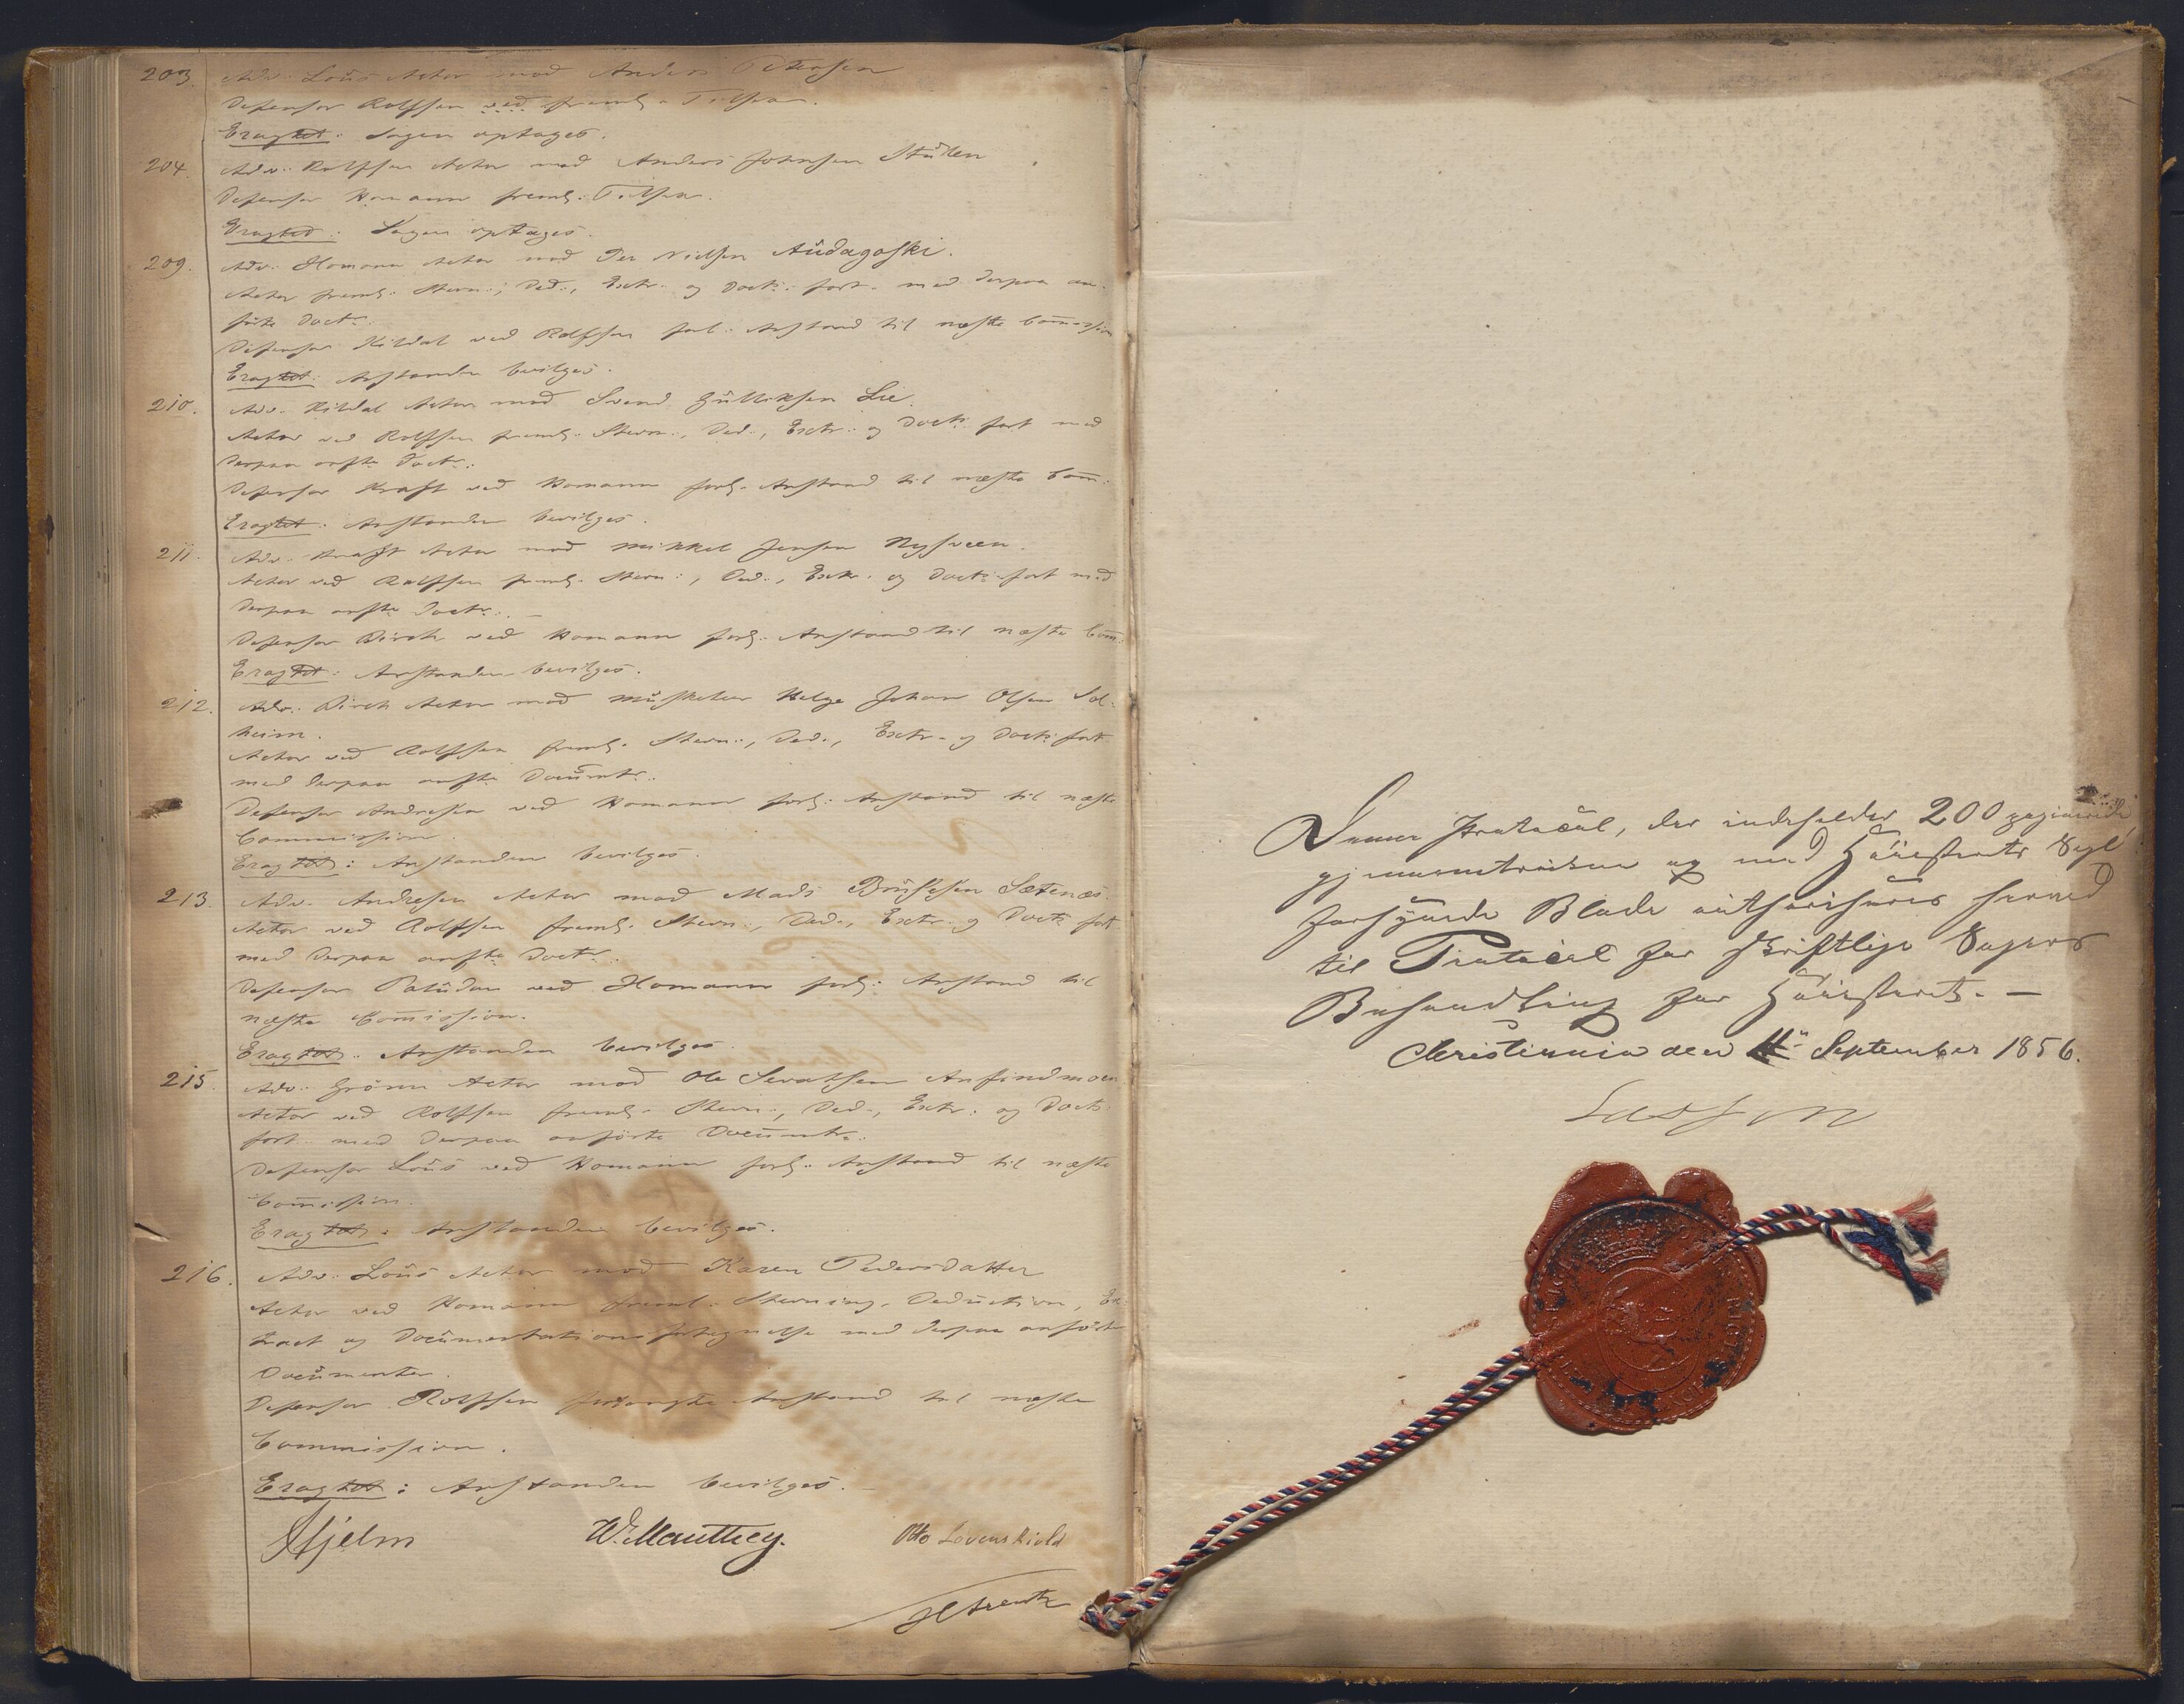 203. Adv. Loüs Actor mod Anders Petersen
Defensor Rolfsen ved freml.
Eragtet: Sagen optages.
204. Adv. Rolfsen Actor mod Anders Johnsen
Defensor Homann freml.
Eragtet: Sagen optages.
209. Adv. Homann Actor mod Per Nielsen Aüdagaski.
Actor freml. Stevn., Ded., Extr. og Doct. fort. med derpaa an-
førte Doctr.
Defensor Kildal ved Rolfsen forl. Anstand til næste Commission
Eragtet: Anstanden bevilges.
210. Adv. Kildal Actor mod Svend Gülliksen Lie.
Actor ved Rolfsen freml. Stevn., Ded., Extr. og Doct. fort med
derpaa anfte Doctr.
Defensor Kraft ved Homann forl. Anstand til næste Com.
Eragtet: Anstanden bevilges.
211. Adv. Kraft Actor mod Mikkel Jensen Nysveen.
Actor ved Rolfsen freml. Stevn., Ded., Extr. og Doct. fort med
derpaa anfte Doctr. —
Defensor Birch ved Homann forl. Anstand til næste Com.
Eragtet: Anstanden bevilges.
212. Adv. Birch Actor mod Müsketeer Helge Johan Olsen Sol-
heim.
Actor ved Rolfsen freml. Stevn., Ded., Extr. og Doct. fort
med derpaa anfte Documtr.
Defensor Andresen ved Homann forl. Anstand til næste
Commission.
Eragtet: Anstanden bevilges.
213. Adv. Andresen Actor mod Mads Sætenæs.
Actor ved Rolfsen freml. Stevn., Ded., Extr. og Doct. fort
med derpaa anfte Doctr.
Defensor Palüdan ved Homann forl. Anstand til
næste Commission.
Eragtet: Anstanden bevilges.
215. Adv. Grønn Actor mod Ole Anfindmoen
Actor ved Rolfsen freml. Stevn., Ded., Extr. og Doct.
fort. med derpaa anførte Documtr.
Defensor Loüs ved Homann forl. Anstand til næste
Commission.
Eragtet: Anstanden bevilges.
216. Adv. Loüs Actor mod Karen Pedersdatter
Actor ved Homann freml. Stevning, Deduction, Ex-
tract og Documentationsfortegnelse med derpaa anførte
Documenter.
Defensor Rolfsen forlangte Anstand til næste
Commission.
Eragtet: Anstanden bevilges. —
Hjelm W. Manthey. Otto Løvenskiold
Denne Protocol, der indeholder 200 paginerede
gjennemtrukne og med Høiesterets Segl
forsynede Blade authoriseres herved
til Protocol for skriftlige Sagers
Behandling for Høiesteret. —
Christiania den 11te September 1856.
Lasson